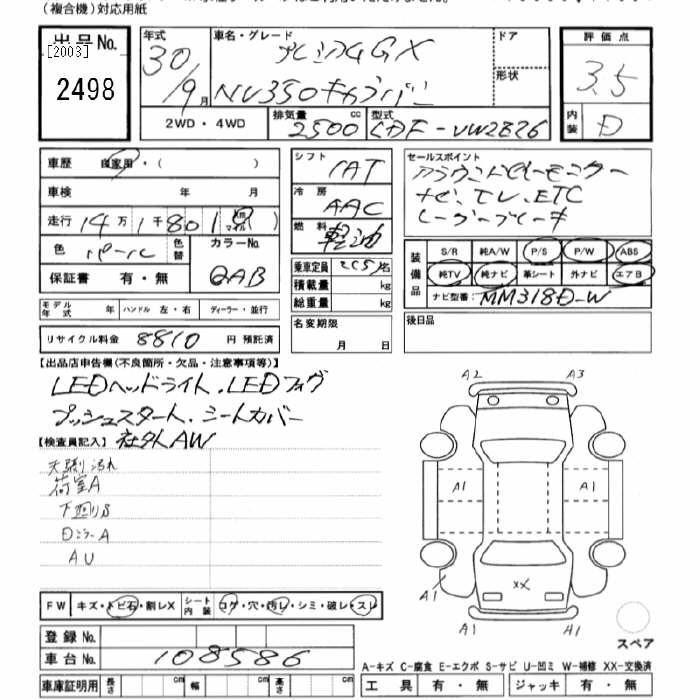 (複合機)対応用紙
出品No.
[2003]
2498
年式
30/9月
車名・グレード
プレミアムGX
NV350キャラバン
ドア
形状
評価点
3.5
内装
D
2WD・4WD
排気量
2500cc
型式
LDF-VW2E26
車歴
自家用・( )
車検 年 月
走行 14万1千801km マイル ( )
色 パール
色替
カラーNo.
QAB
保証書 有・無
モデル年式 年
ハンドル 左・右
ディーラー・並行
リサイクル料金 8810 円 預託済
シフト
IAT
冷房
AAC
燃料
軽油
乗車定員 2(5)名
積載量 kg
総重量 kg
名変期限
月 日
セールスポイント
アラウンドビューモニター
ナビ、TV、ETC
レーダーブレーキ
装備品
S/R 純A/W P/S P/W ABS
純TV 純ナビ 革シート 外ナビ エアB
ナビ型番: MM318D-W
後日品
【出品店申告欄(不良箇所・欠品・注意事項等)】
LEDヘッドライト、LEDフォグ
プッシュスタート、シートカバー
社外AW
【検査員記入】
天張り汚れ
荷室A
下廻りS
DミラーA
AU
A2 A3
A1 A1
XX
A1
A1 A1
スペア
FW キズ・トビ石・割レX
シート内装 コゲ・穴・汚レ・シミ・破レ・スレ
登録No.
車台No. 108586
車庫証明用 長さ cm 幅 cm 高さ cm
A-キズ C-腐食 E-エクボ S-サビ U-凹ミ W-補修 XX-交換済
工具 有・無 ジャッキ 有・無